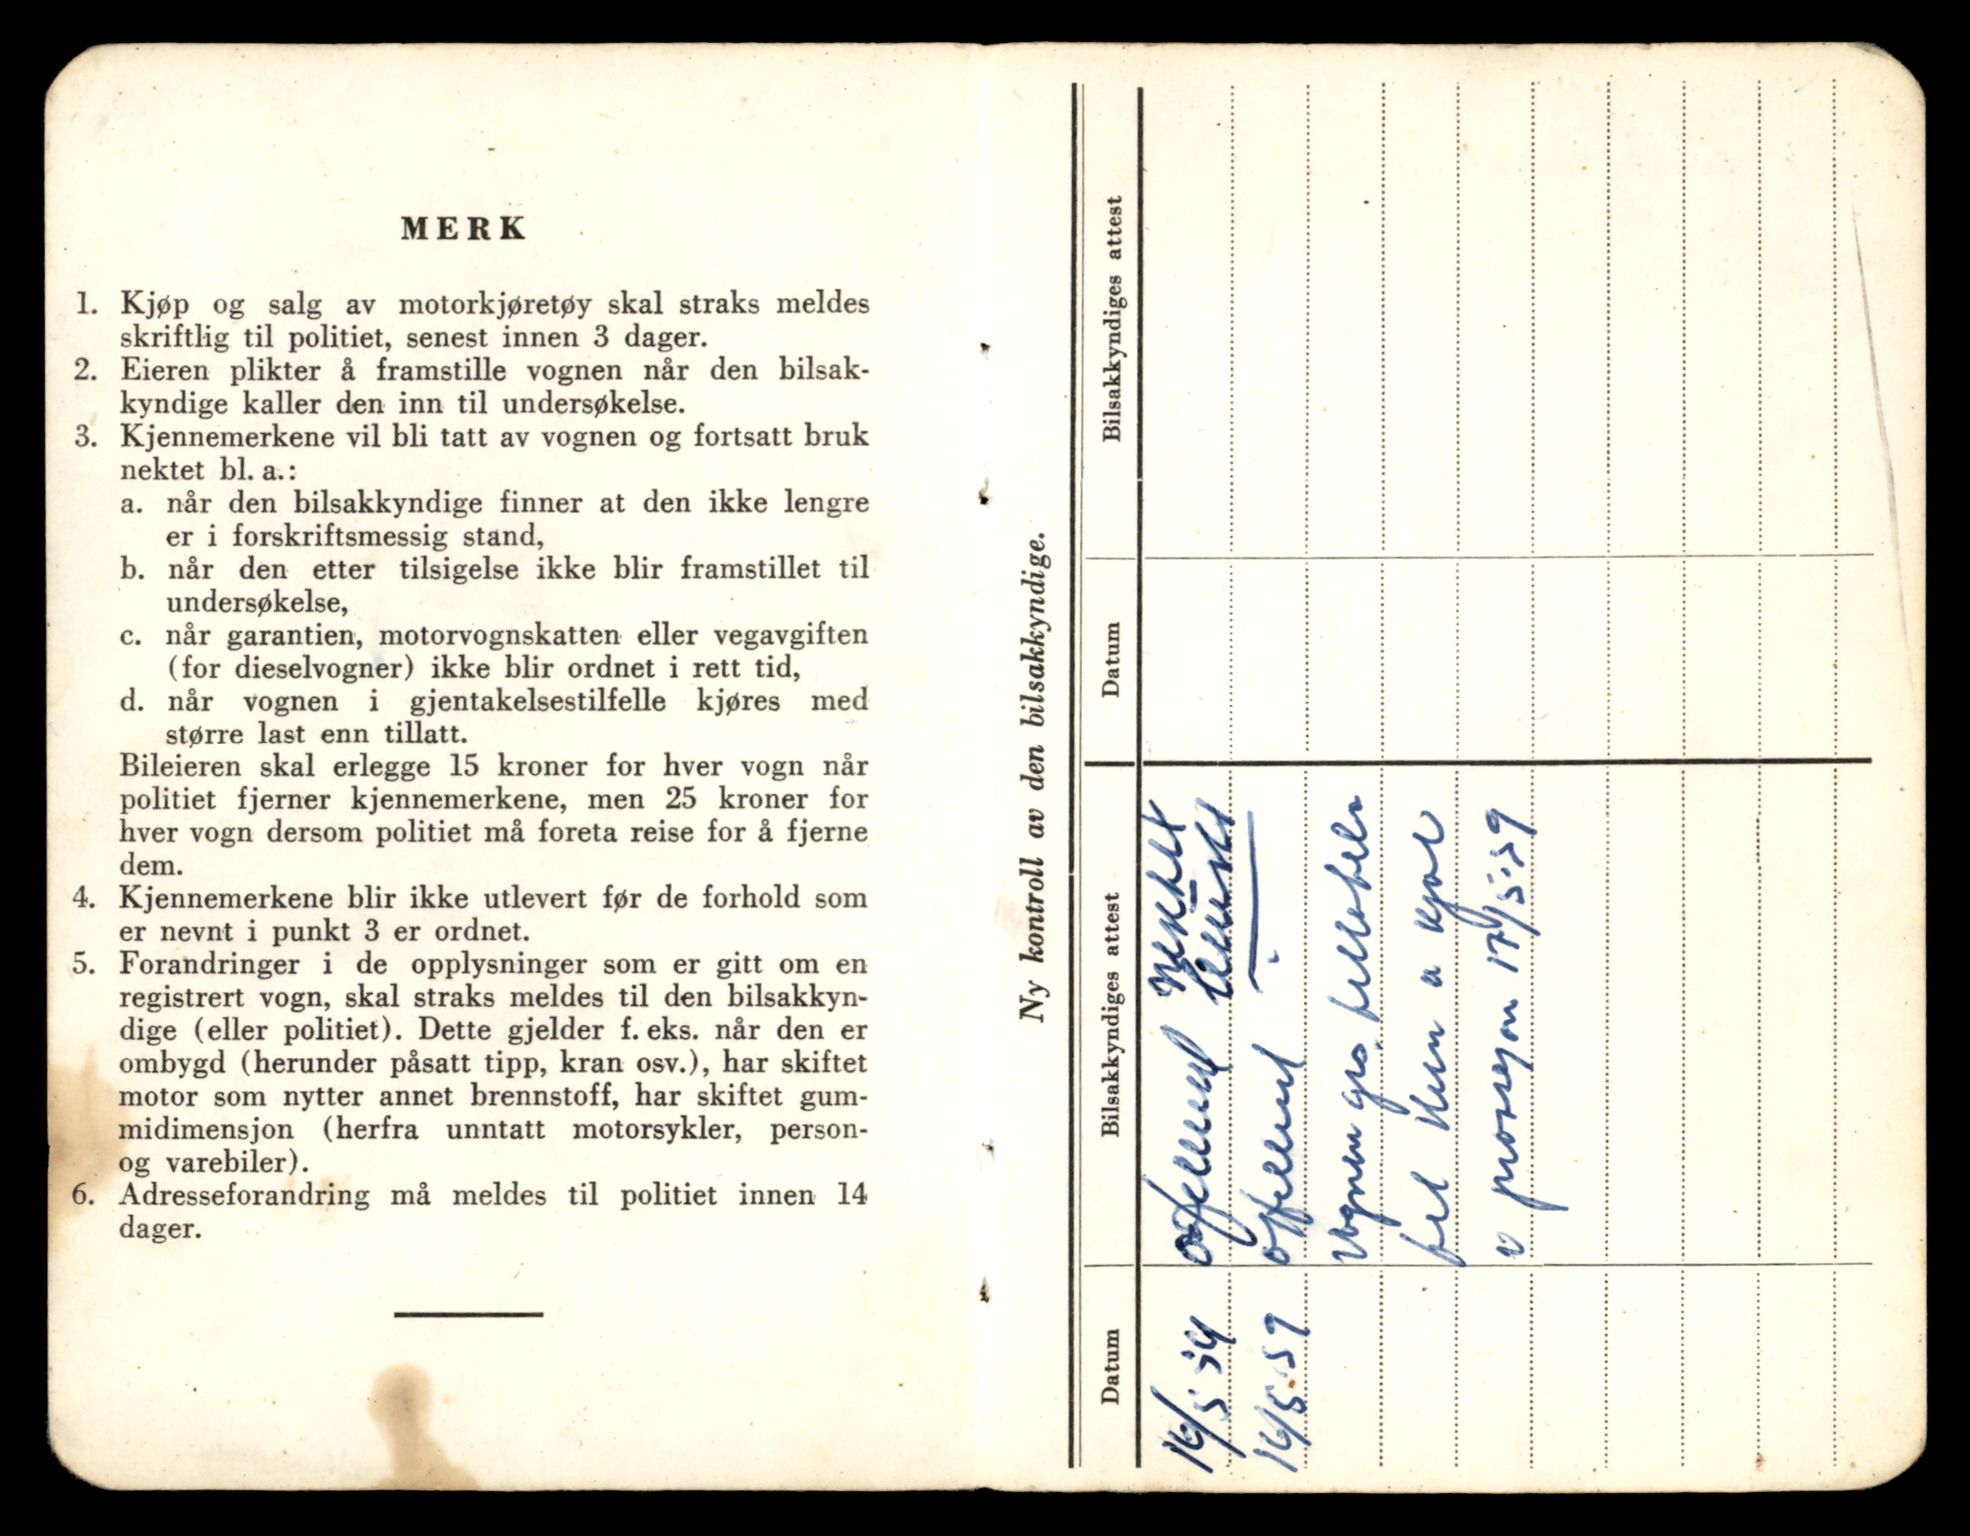 MERK
1. Kjøp og salg av motorkjøretøy skal straks meldes
skriftlig til politiet, senest innen 3 dager.
2. Eieren plikter å framstille vognen når den bilsak-
kyndige kaller den inn til undersøkelse.
3. Kjennemerkene vil bli tatt av vognen og fortsatt bruk
nektet bl. a.:
a. når den bilsakkyndige finner at den ikke lengre
er i forskriftsmessig stand,
b. når den etter tilsigelse ikke blir framstillet til
undersøkelse,
c. når garantien, motorvognskatten eller vegavgiften
(for dieselvogner) ikke blir ordnet i rett tid,
d. når vognen i gjentakelsestilfelle kjøres med
større last enn tillatt.
Bileieren skal erlegge 15 kroner for hver vogn når
politiet fjerner kjennemerkene, men 25 kroner for
hver vogn dersom politiet må foreta reise for å fjerne
dem.
4. Kjennemerkene blir ikke utlevert før de forhold som
er nevnt i punkt 3 er ordnet.
5. Forandringer i de opplysninger som er gitt om en
registrert vogn, skal straks meldes til den bilsakkyn-
dige (eller politiet). Dette gjelder f. eks. når den er
ombygd (herunder påsatt tipp, kran osv.), har skiftet
motor som nytter annet brennstoff, har skiftet gum-
midimensjon (herfra unntatt motorsykler, person-
og varebiler).
6. Adresseforandring må meldes til politiet innen 14
dager.
Ny kontroll av den bilsakkyndige.
Datum Bilsakkyndiges attest Datum Bilsakkyndiges attest
16/5
16/5.59
Vognen
17/5.59